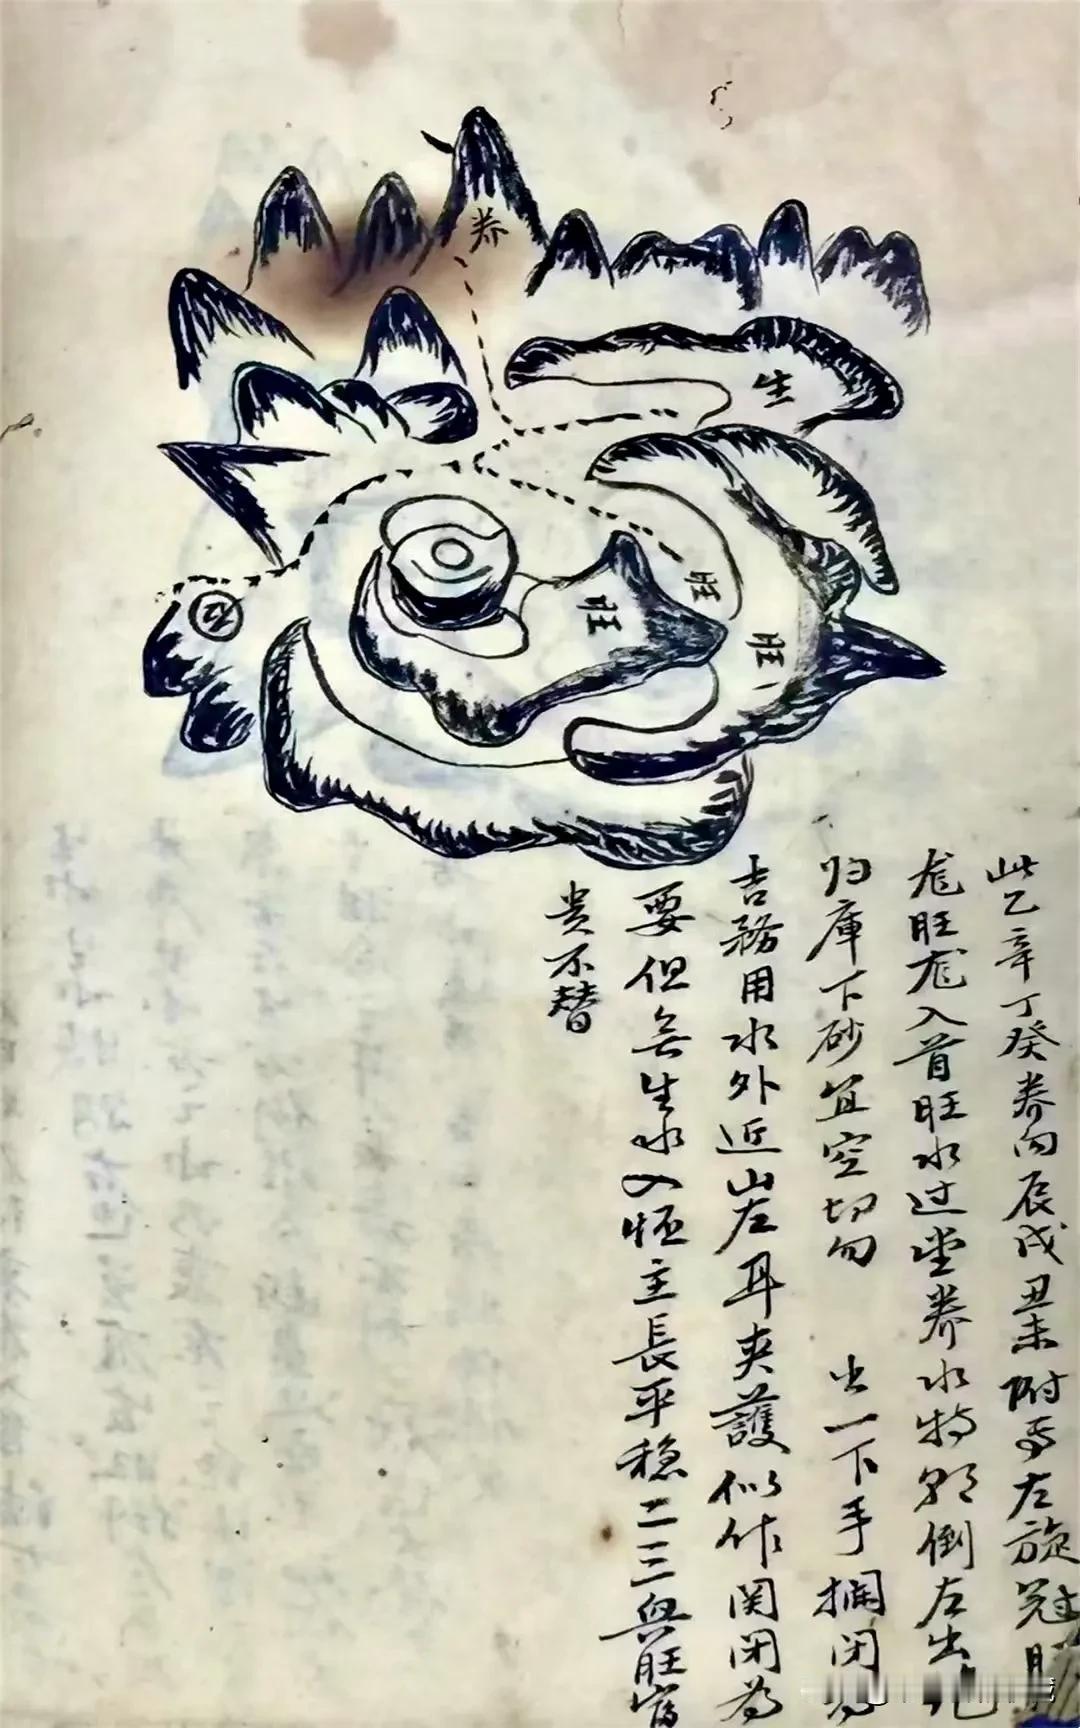 养
生
旺
旺
旺
此乙辛丁癸养向辰戌丑未附焉左旋冠
龙旺龙入首旺水过堂养水特朝倒左出
归庫下砂宜空切勿 出一下手掤闭为
吉務用水外近山左耳夹護似作関闭为
要但無生水入怔主長平稳二三興旺富
贵不替